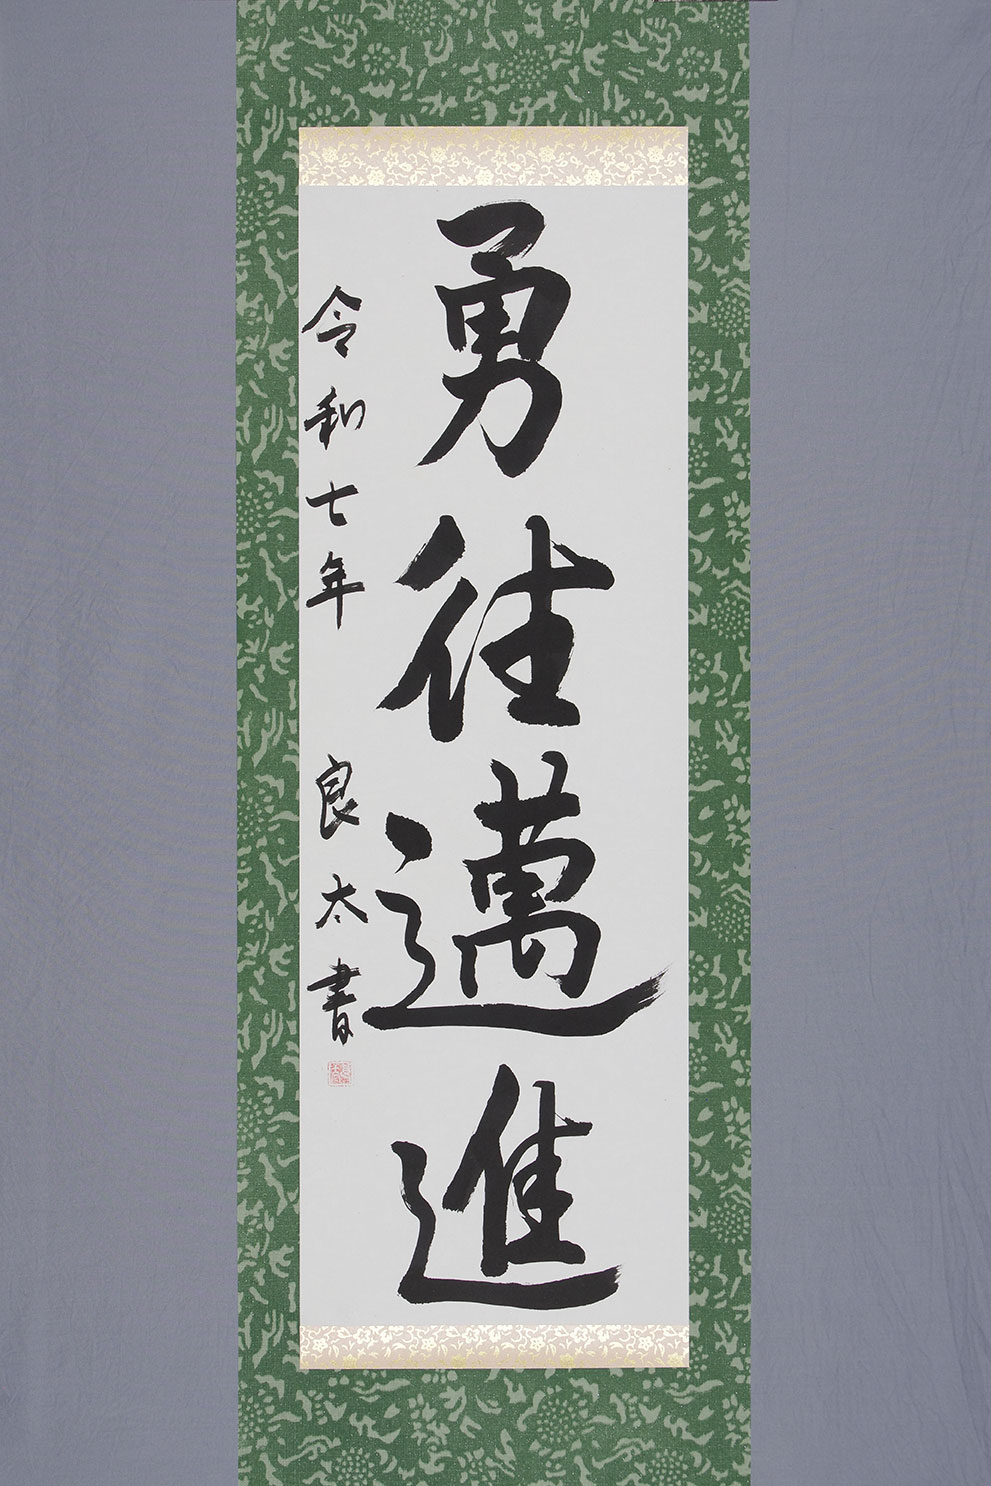 勇往邁進
令和七年 良太書